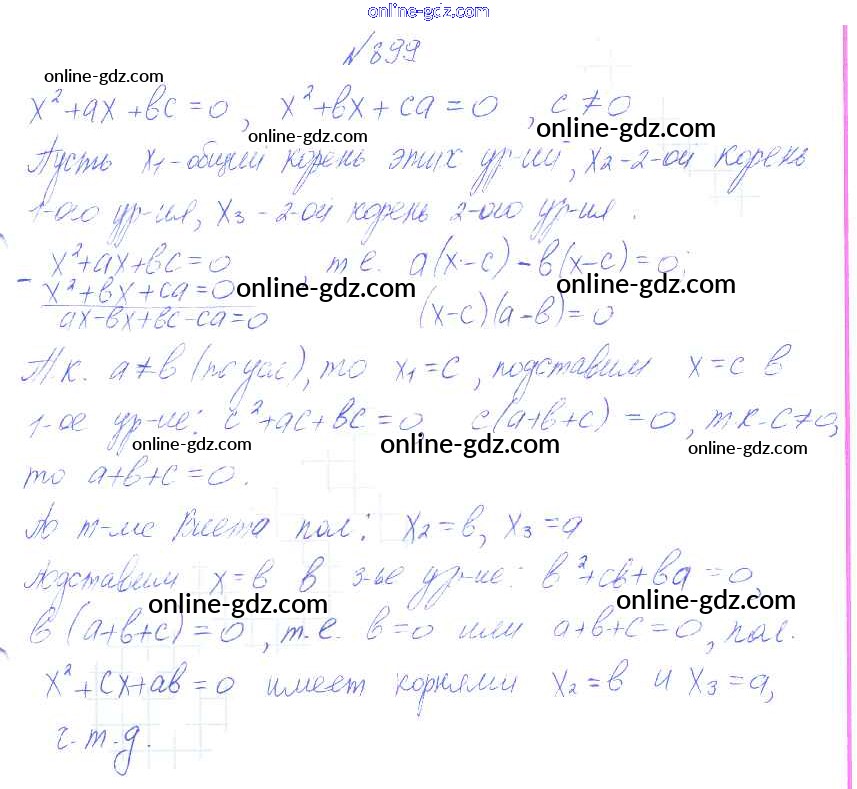 online-gdz.com
№ 899
online-gdz.com
x²+ax+вc=0, x²+вx+ca=0, c≠0
online-gdz.com online-gdz.com
Пусть x₁-общий корень этих ур-ий, x₂-2-ой корень
1-ого ур-ия, x₃-2-ой корень 2-ого ур-ия.
- x²+ax+вc=0, т.е. a(x-c)-в(x-c)=0;
x²+вx+ca=0 online-gdz.com online-gdz.com
ax-вx+вc-ca=0 (x-c)(a-в)=0
Т.к. a≠в (по усл), то x₁=c, подставим x=c в
1-ое ур-ие: c²+ac+вc=0, c(a+в+c)=0, т.к. c≠0,
online-gdz.com online-gdz.com online-gdz.com
то a+в+c=0.
По т-ме Виета пол: x₂=в, x₃=a
Подставим x=в в 3-ье ур-ие: в²+cв+вa=0,
online-gdz.com online-gdz.com
в(a+в+c)=0, т.е. в=0 или a+в+c=0, пол.
x²+cx+aв=0 имеет корнями x₂=в и x₃=a,
ч.т.д.